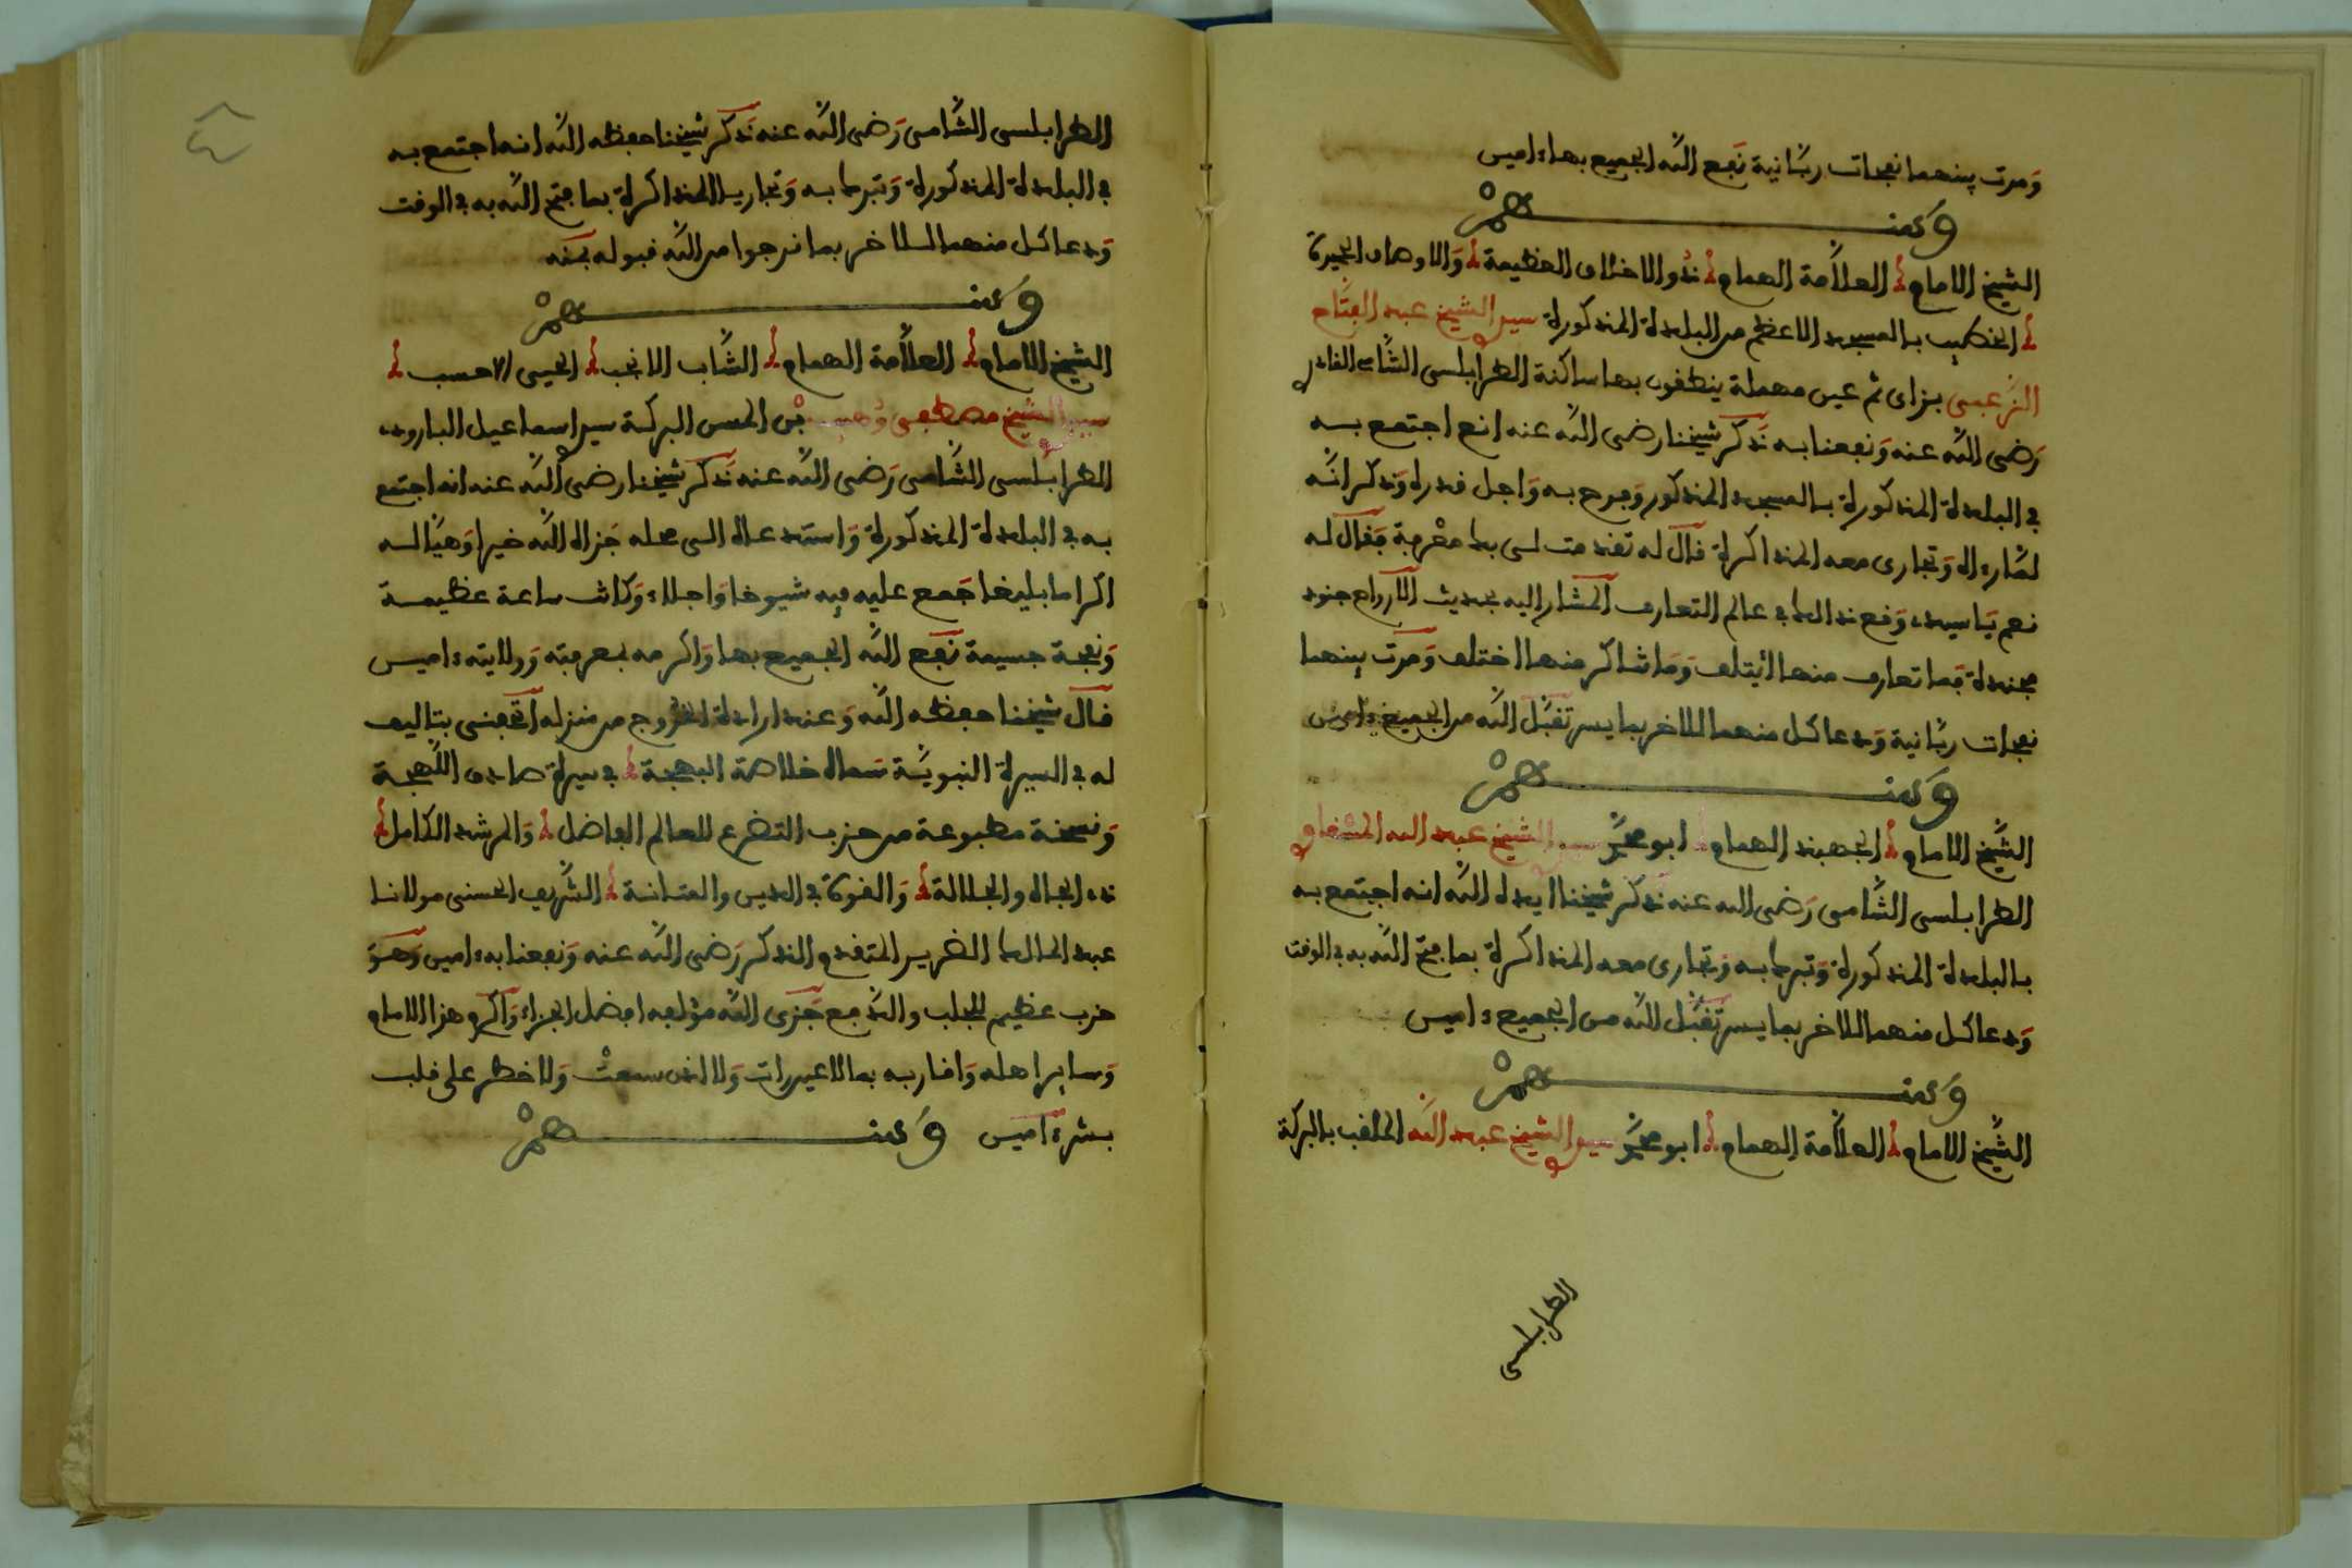 ومرت بينهما نفحات ربانية نفع الله الجميع بها ءامين
ومنهم
الشيخ الامام العلامة الهمام ذو الاخلاق العظيمة والاوصاف
الخطيب بالمسجد الاعظم من البلدة المذكورة سيدي الشيخ عبد الفتاح
الزعبي بزاى ثم عين مهملة ينطقون بها ساكنة الطرابلسي الشامي القادري
رضي الله عنه ونفعنا به ذكر شيخنا رضي الله عنه انه اجتمع به
في البلدة المذكورة بالمسجد المذكور وفرح به واجل قدره وذكر انه
لما رءاه وتجارى معه المذاكرة قال له تقدمت لي بك معرفة فقال له
نعم يا سيدي وقع ذلك في عالم التعارف المشار اليه بحديث الارواح جنود
مجندة فما تعارف منها ايتلف وما تناكر منها اختلف ومرت بينهما
نفحات ربانية ودعا كل منهما للاخر بما يسر تقبل الله من الجميع ءامين
ومنهم
الشيخ الامام الجهبذ الهمام ابو محمد سيدي الشيخ عبد الله
الطرابلسي الشامي رضي الله عنه ذكر شيخنا ايده الله انه اجتمع به
بالبلدة المذكورة وتبرك به وتجارى معه المذاكرة بما فتح الله به في الوقت
ودعا كل منهما للاخر بما يسر تقبل الله من الجميع ءامين
ومنهم
الشيخ الامام العلامة الهمام ابو محمد سيدي الشيخ عبد الله الملقب بالبركة
الطرابلسي
الطرابلسي الشامي رضي الله عنه ذكر شيخنا حفظه الله انه اجتمع به
في البلدة المذكورة وتبرك به وتجاريا المذاكرة بما فتح الله به في الوقت
ودعا كل منهما للاخر بما نرجوا من الله قبوله بمنه
ومنهم
الشيخ الامام العلامة الهمام الشاب الانجب الاحسب
سيدي الشيخ مصطفى وهيب بن البركة سيدي اسماعيل البارودي
الطرابلسي الشامي رضي الله عنه ذكر شيخنا رضي الله عنه انه اجتمع
به في البلدة المذكورة واستدعاه الى محله جزاه الله خيرا وهيأ له
اكراما بليغا جمع عليه فيه شيوخا واجلاء وكانت ساعة عظيمة
ونفحة جسيمة نفع الله الجميع بها واكرمه بمعرفته وولايته ءامين
قال شيخنا حفظه الله وعند ارادة الخروج من منزله اتحفني بتاليف
له في السيرة النبوية سماه خلاصة البهجة في سيرة صادق اللهجة
ونسخة مطبوعة من حزب التضرع للعالم الفاضل والمرشد الكامل
ذي الجاه والجلالة والقوة في الدين والمتانة الشريف الحسني مولانا
عبد المالك الضرير المتقدم الذكر رضي الله عنه ونفعنا به ءامين وهو
حزب عظيم للجلب والدفع جزى الله مؤلفه افضل الجزاء واكرم هذا الامام
وساير اهله واقاربه بما لا عين رات ولا اذن سمعت ولا خطر على قلب
بشر ءامين ومنهم